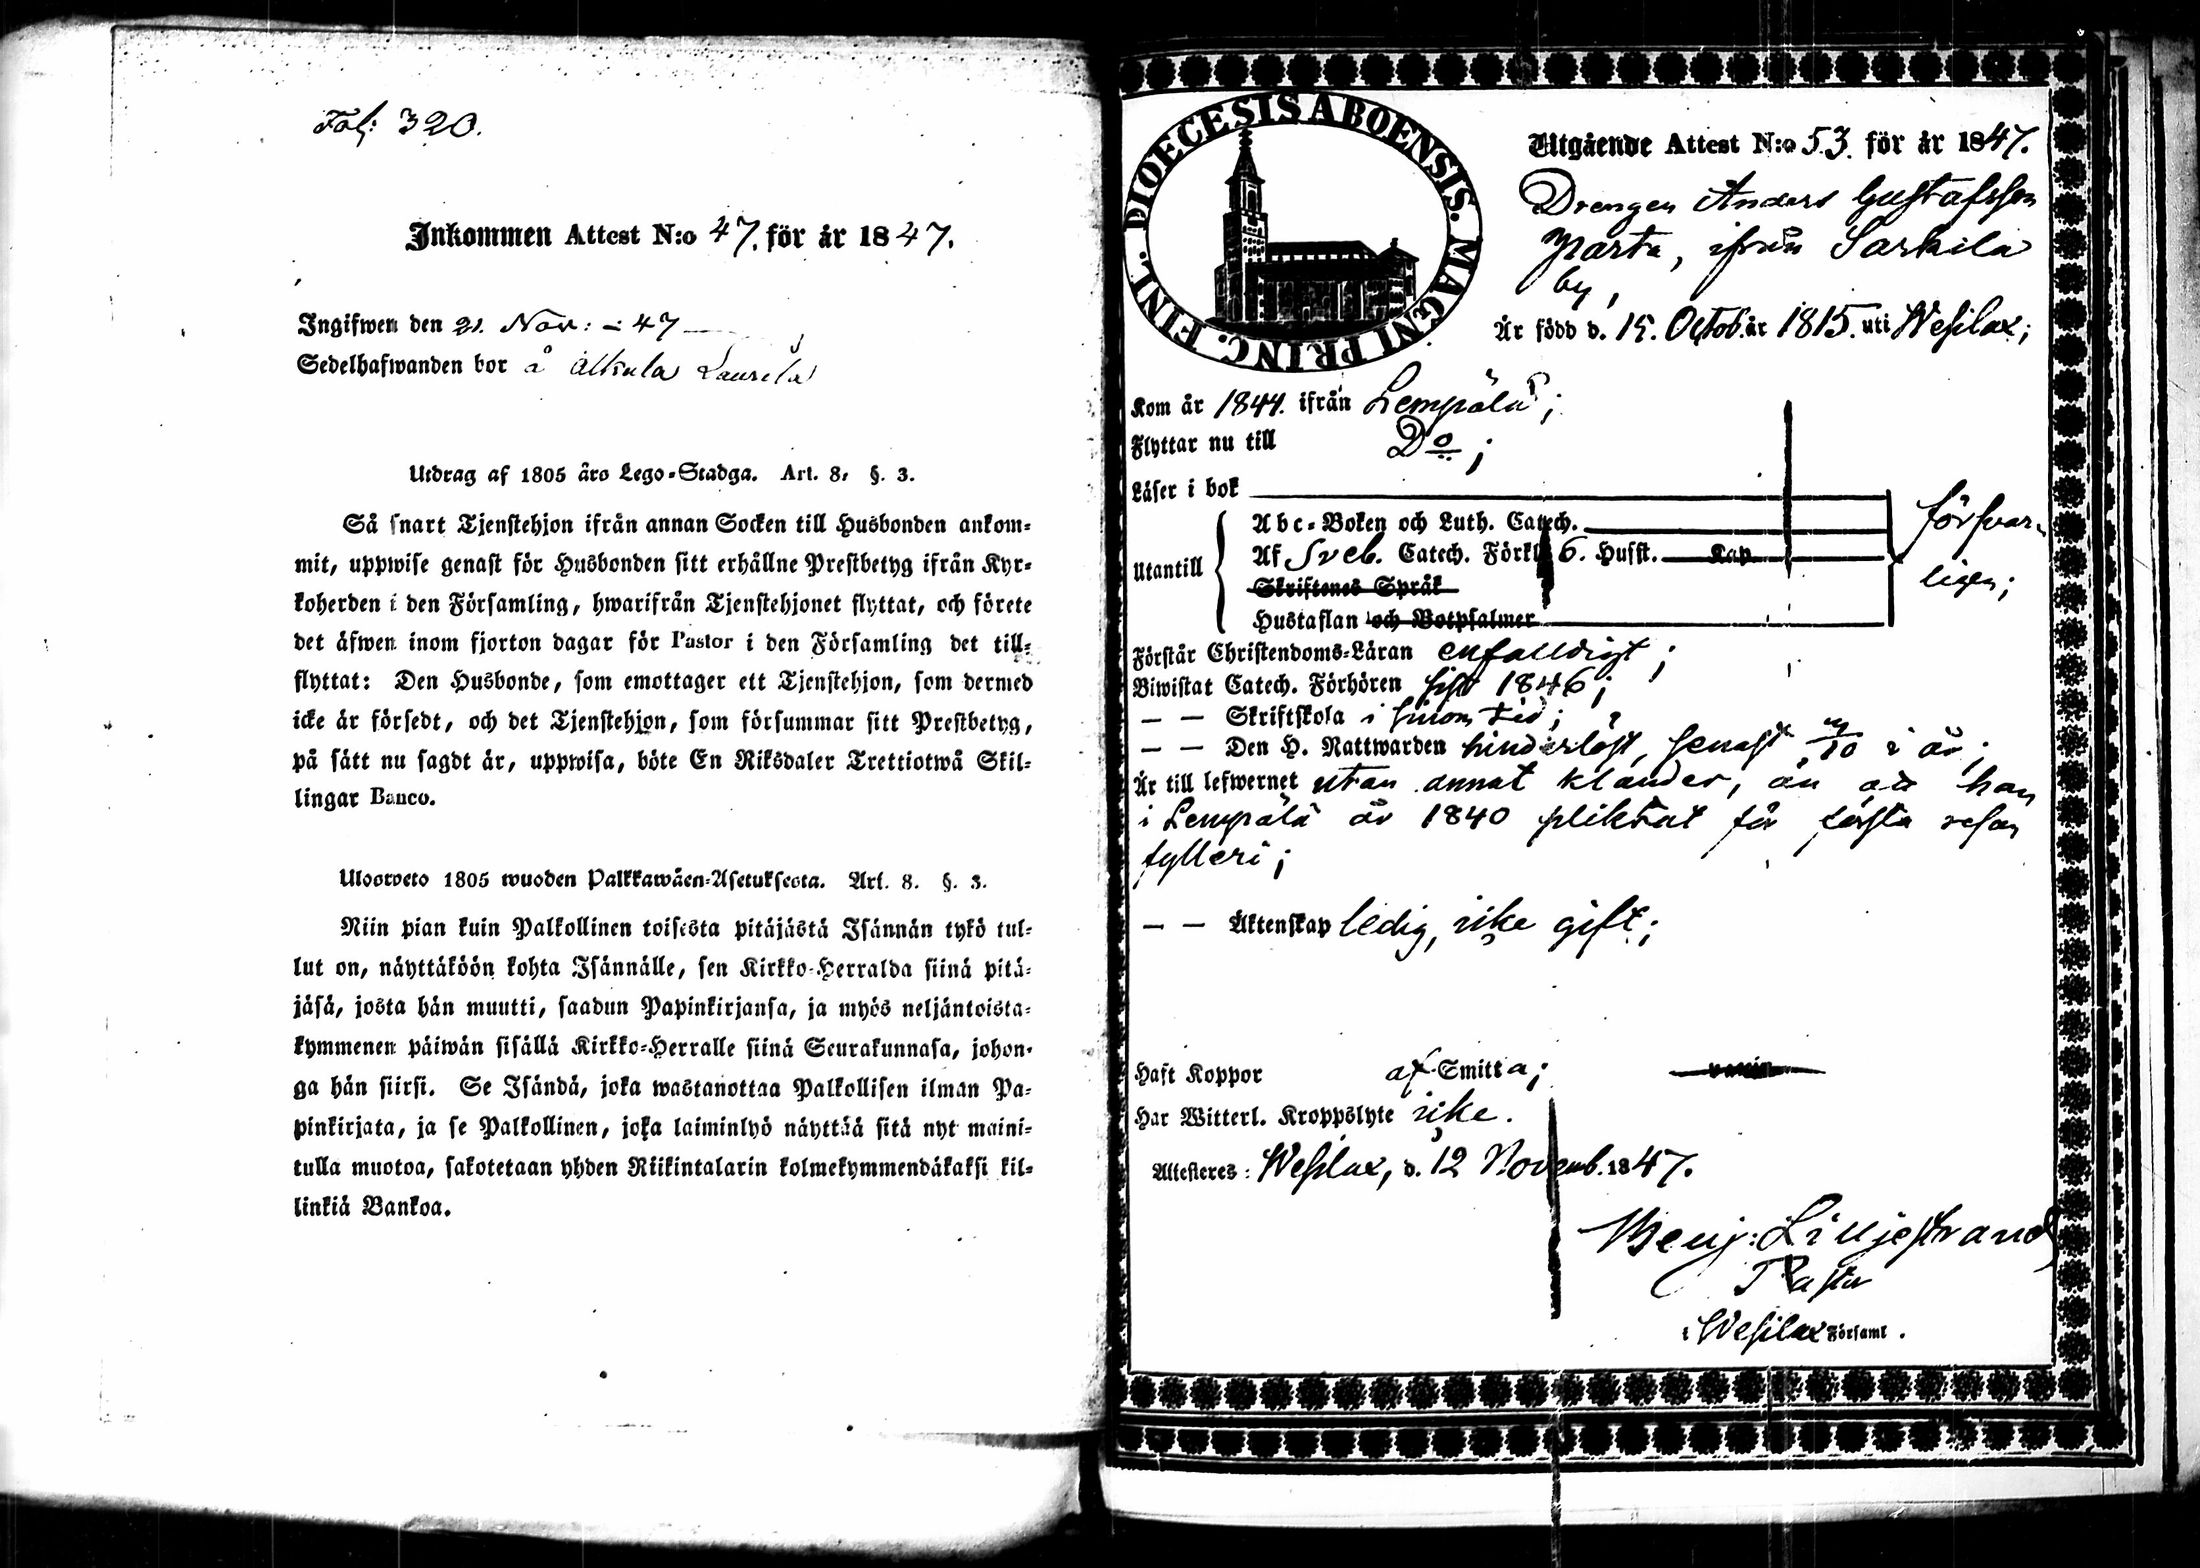 Fol: 320.
Inkommen Attest N:o 47. för år 1847.
Ingifwen den 21. Nov: -47
Sedelhafwanden bor å Alkula Laurila
Utdrag af 1805 års Lego-Stadga. Art. 8. §. 3.
Så snart Tjenstehjon ifrån annan Socken till Husbonden ankom-
mit, uppwise genast för Husbonden sitt erhållne Prestbetyg ifrån Kyr-
koherden i den Församling, hwarifrån Tjenstehjonet flyttat, och förete
det äfwen inom fjorton dagar för Pastor i den Församling det till-
flyttat: Den Husbonde, som emottager ett Tjenstehjon, som dermed
icke är försedt, och det Tjenstehjon, som försummar sitt Prestbetyg,
på sätt nu sagdt är, uppwisa, böte En Riksdaler Trettiotwå Skil-
lingar Banco.
Uloosweto 1805 wuoden Palkkawäen-Asetuksesta. Art. 8. §. 3.
Niin pian kuin Palkollinen toisesta pitäjästä Isännän tykö tul-
lut on, näyttäköön kohta Isännälle, sen Kirkko-Herralda siinä pitä-
jäsä, josta hän muutti, saadun Papinkirjansa, ja myös neljäntoista-
kymmenen päiwän sisällä Kirkko-Herralle siinä Seurakunnasa, johon-
ga hän siirsi. Se Isändä, joka wastanottaa Palkollisen ilman Pa-
pinkirjata, ja se Palkollinen, joka laiminlyö näyttää sitä nyt maini-
tulla muotoa, sakotetaan yhden Riikintalarin kolmekymmendäkaksi kil-
linkiä Bankoa.
DIOECESIS ABOENSIS. MAGNI PRINC. FINL.
Utgående Attest N:o 53. för år 1847.
Drengen Anders Gustafsson
Parta, ifrån Sarkila
by,
Är född d. 15. Octob. år 1815. uti Wesilax;
Kom år 1844. ifrån Lempälä;
Flyttar nu till Do;
Läser i bok
Utantill
Abc-Boken och Luth. Catech.
Af Sveb. Catech. Förkl. 6. Hufst. Kap
Skriftenes Språk
Hustaflan och Botpsalmer
försvar-
ligen;
Förstår Christendoms-Läran enfaldigt;
Biwistat Catech. Förhören sist 1846;
— — Skriftskola i sinom tid;
— — Den H. Nattwarden hinderlöst, senast /10 i år;
Är till lefwernet utan annat klander, än att han
i Lempälä år 1840 pliktat för första resan
fylleri;
— — Äktenskap ledig, icke gift;
Haft Koppor af Smitta; vaccin
Har Witterl. Kroppslyte icke.
Attesteres: Wesilax, d. 12 Novemb. 1847.
Benj: Liljestrand
Pastor
i Wesilax Församl.